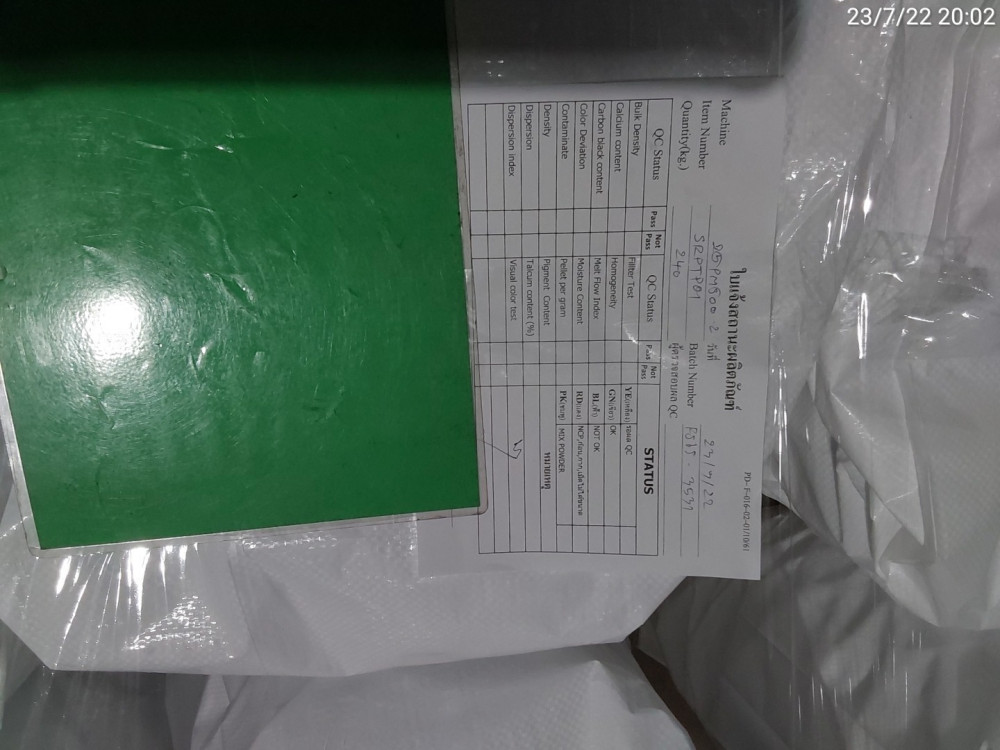 23/7/22 20:02
PD-F-016-02-01/10/61
ใบแจ้งสถานะผลิตภัณฑ์
Machine 2 วันที่ 23/7/22
Item Number SRPTP01 Batch Number
Quantity(kg.) 240 ผู้ตรวจสอบผล QC
QC Status Pass Not Pass QC Status Pass Not Pass STATUS
Bulk Density Fillter Test YE(เหลือง) รอผล QC
Calcium content Homogeneity GN(เขียว) OK
Carbon black content Melt Flow Index BL(ฟ้า) NOT OK
Color Deviation Moisture Content RD(แดง)
Contaminate Pellet per gram PK(ชมพู) MIX POWDER
Density Pigment Content หมายเหตุ
Dispersion Talcum content (%)
Dispersion index Visual color test